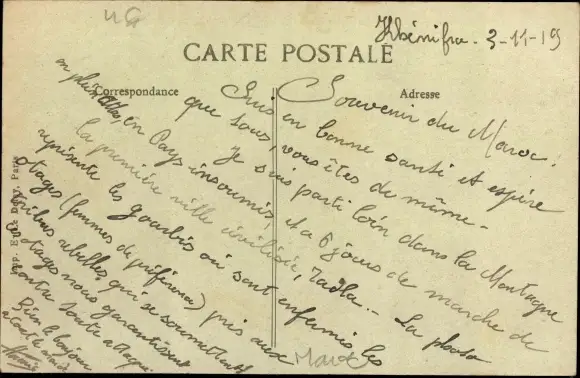 Khénifra. 3-11-19
CARTE POSTALE
Correspondance
Adresse
Souvenir du Maroc!
Suis en bonne santé et espère
que tous, vous êtes de même -
Je suis parti loin dans la Montagne
en plein Atlas, en Pays insoumis, et à 6 jours de marche de
la première ville civilisée, Tadla.. La photo
représente les gourbis où sont enfermés les
otages (femmes de préférence) pris aux
tribus rebelles qui se soumettent
ces otages nous garantissent
contre toute attaque.
Bien le bonjour
à tout le monde
Maroc
Paris